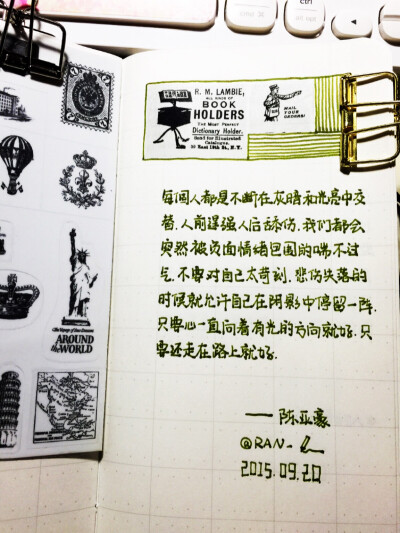 ctrl
R. M. LAMBIE,
ALL KINDS OF
BOOK
HOLDERS
The Most Perfect
Dictionary Holder.
Send for Illustrated
Catalogue.
39 East 19th St., N.Y.
MAIL
YOUR
ORDERS!
每个人都是不断在灰暗和光亮中交
替.人前逞强人后舔伤.我们都会
突然被负面情绪包围的喘不过
气.不要对自己太苛刻.悲伤失落的
时候就允许自己在阴影中停留一阵.
只要心一直向着有光的方向就好.只
要还走在路上就好.
——陈亚豪
@RAN-
2015.09.20
The Voyage of Our Dreams
AROUND
THE WORLD